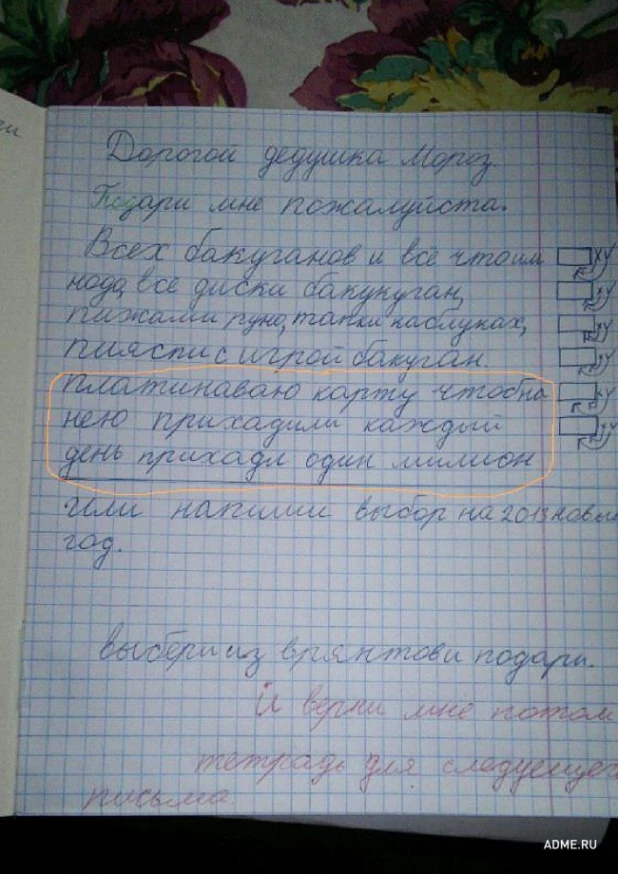 Дорогой дедушка Мороз.
Подари мне пожалуйста.
Всех бакуганов и всё чтоим
нода, все диски бакукуган,
пижами руно, тапки каблуках,
пияспи с игрой бакуган.
платинаваю карту чтобна
нею прихадили каждый
день прихадл один милион
или напиши выбор на 2013 новый
год.
выбери из врянтови подари.
И верни мне потом
тетрадь для следующего
письма.
ADME.RU